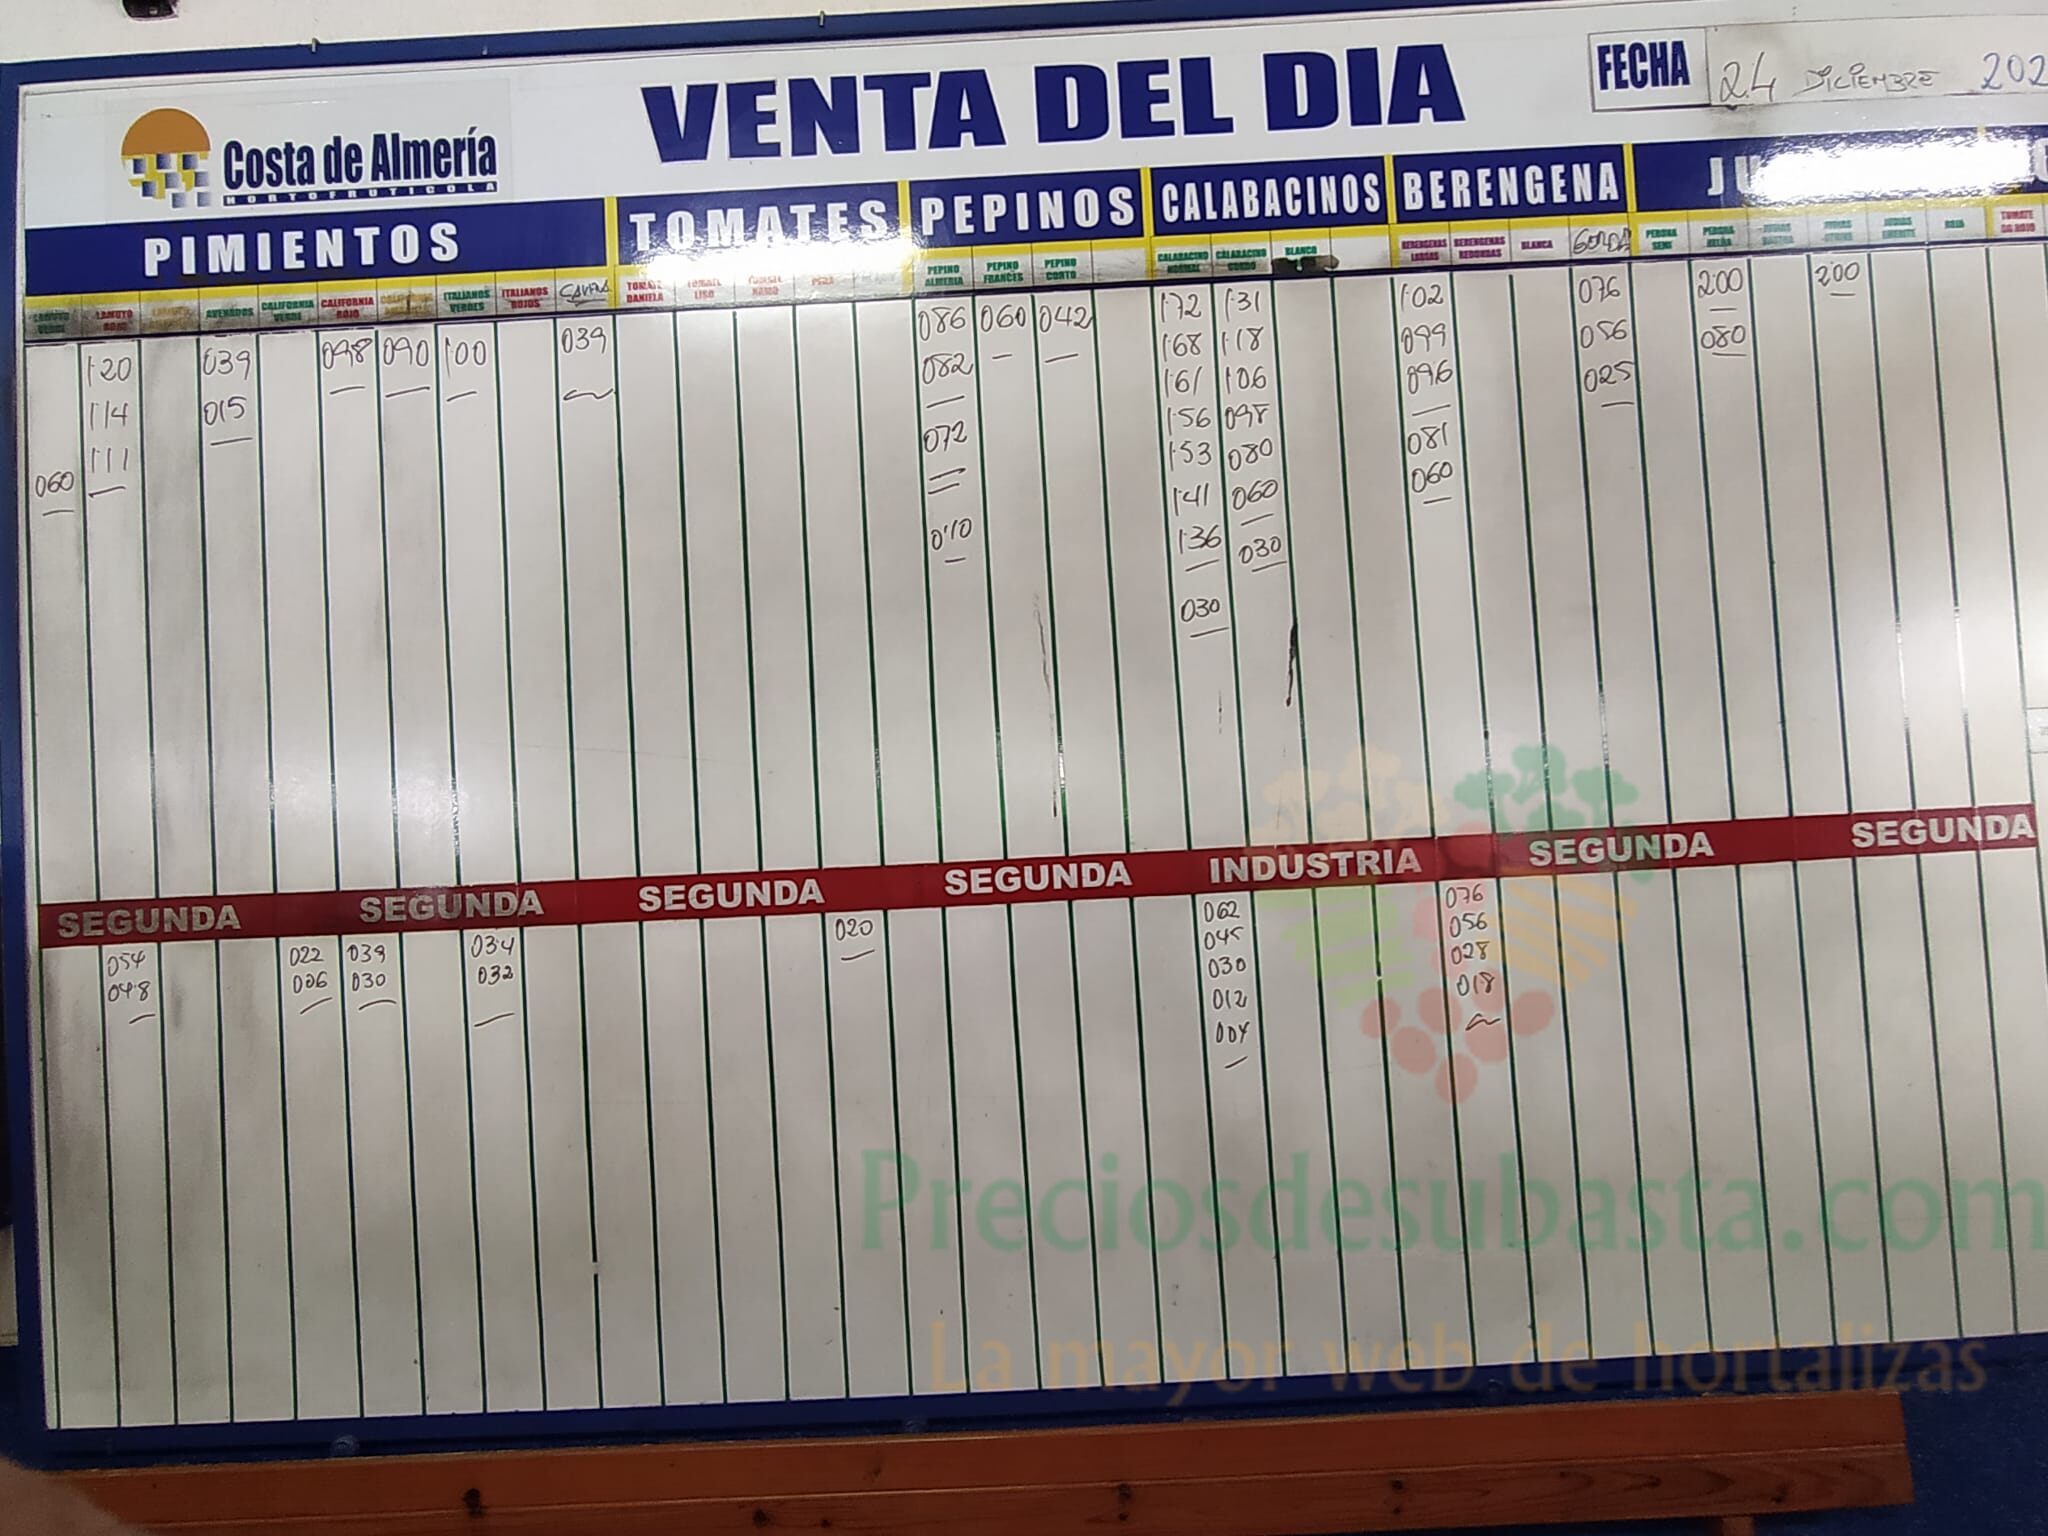 VENTA DEL DIA
FECHA 24 DICIEMBRE 202
Costa de Almería
HORTOFRUTICOLA
PIMIENTOS TOMATES PEPINOS CALABACINOS BERENGENA JU
LAMUYO VERDE LAMUYO ROJO AVENADOS CALIFORNIA VERDE CALIFORNIA ROJO ITALIANOS VERDES ITALIANOS ROJOS TOMATE DANIELA TOMATE LISO PERA PEPINO ALMERIA PEPINO FRANCES PEPINO CORTO CALABACINO NORMAL CALABACINO GORDO BLANCA BERENGENAS LARGAS BERENGENAS REDONDAS BLANCA GORDA PERONA SEMI PERONA HELDA ROJA TOMATE
120 039 098 090 100 039 086 060 042 1'72 1'31 1'02 076 200 200
114 015 082 168 1'18 099 056 080
111 1'61 106 096 025
060 072 1'56 098 081
1'53 080 060
1'41 060
0'10 1'36 030
030
SEGUNDA SEGUNDA SEGUNDA SEGUNDA INDUSTRIA SEGUNDA SEGUNDA
054 022 039 034 020 062 076
048 006 030 032 045 056
030 028
012 018
004
Preciosdesubasta.com
La mayor web de hortalizas